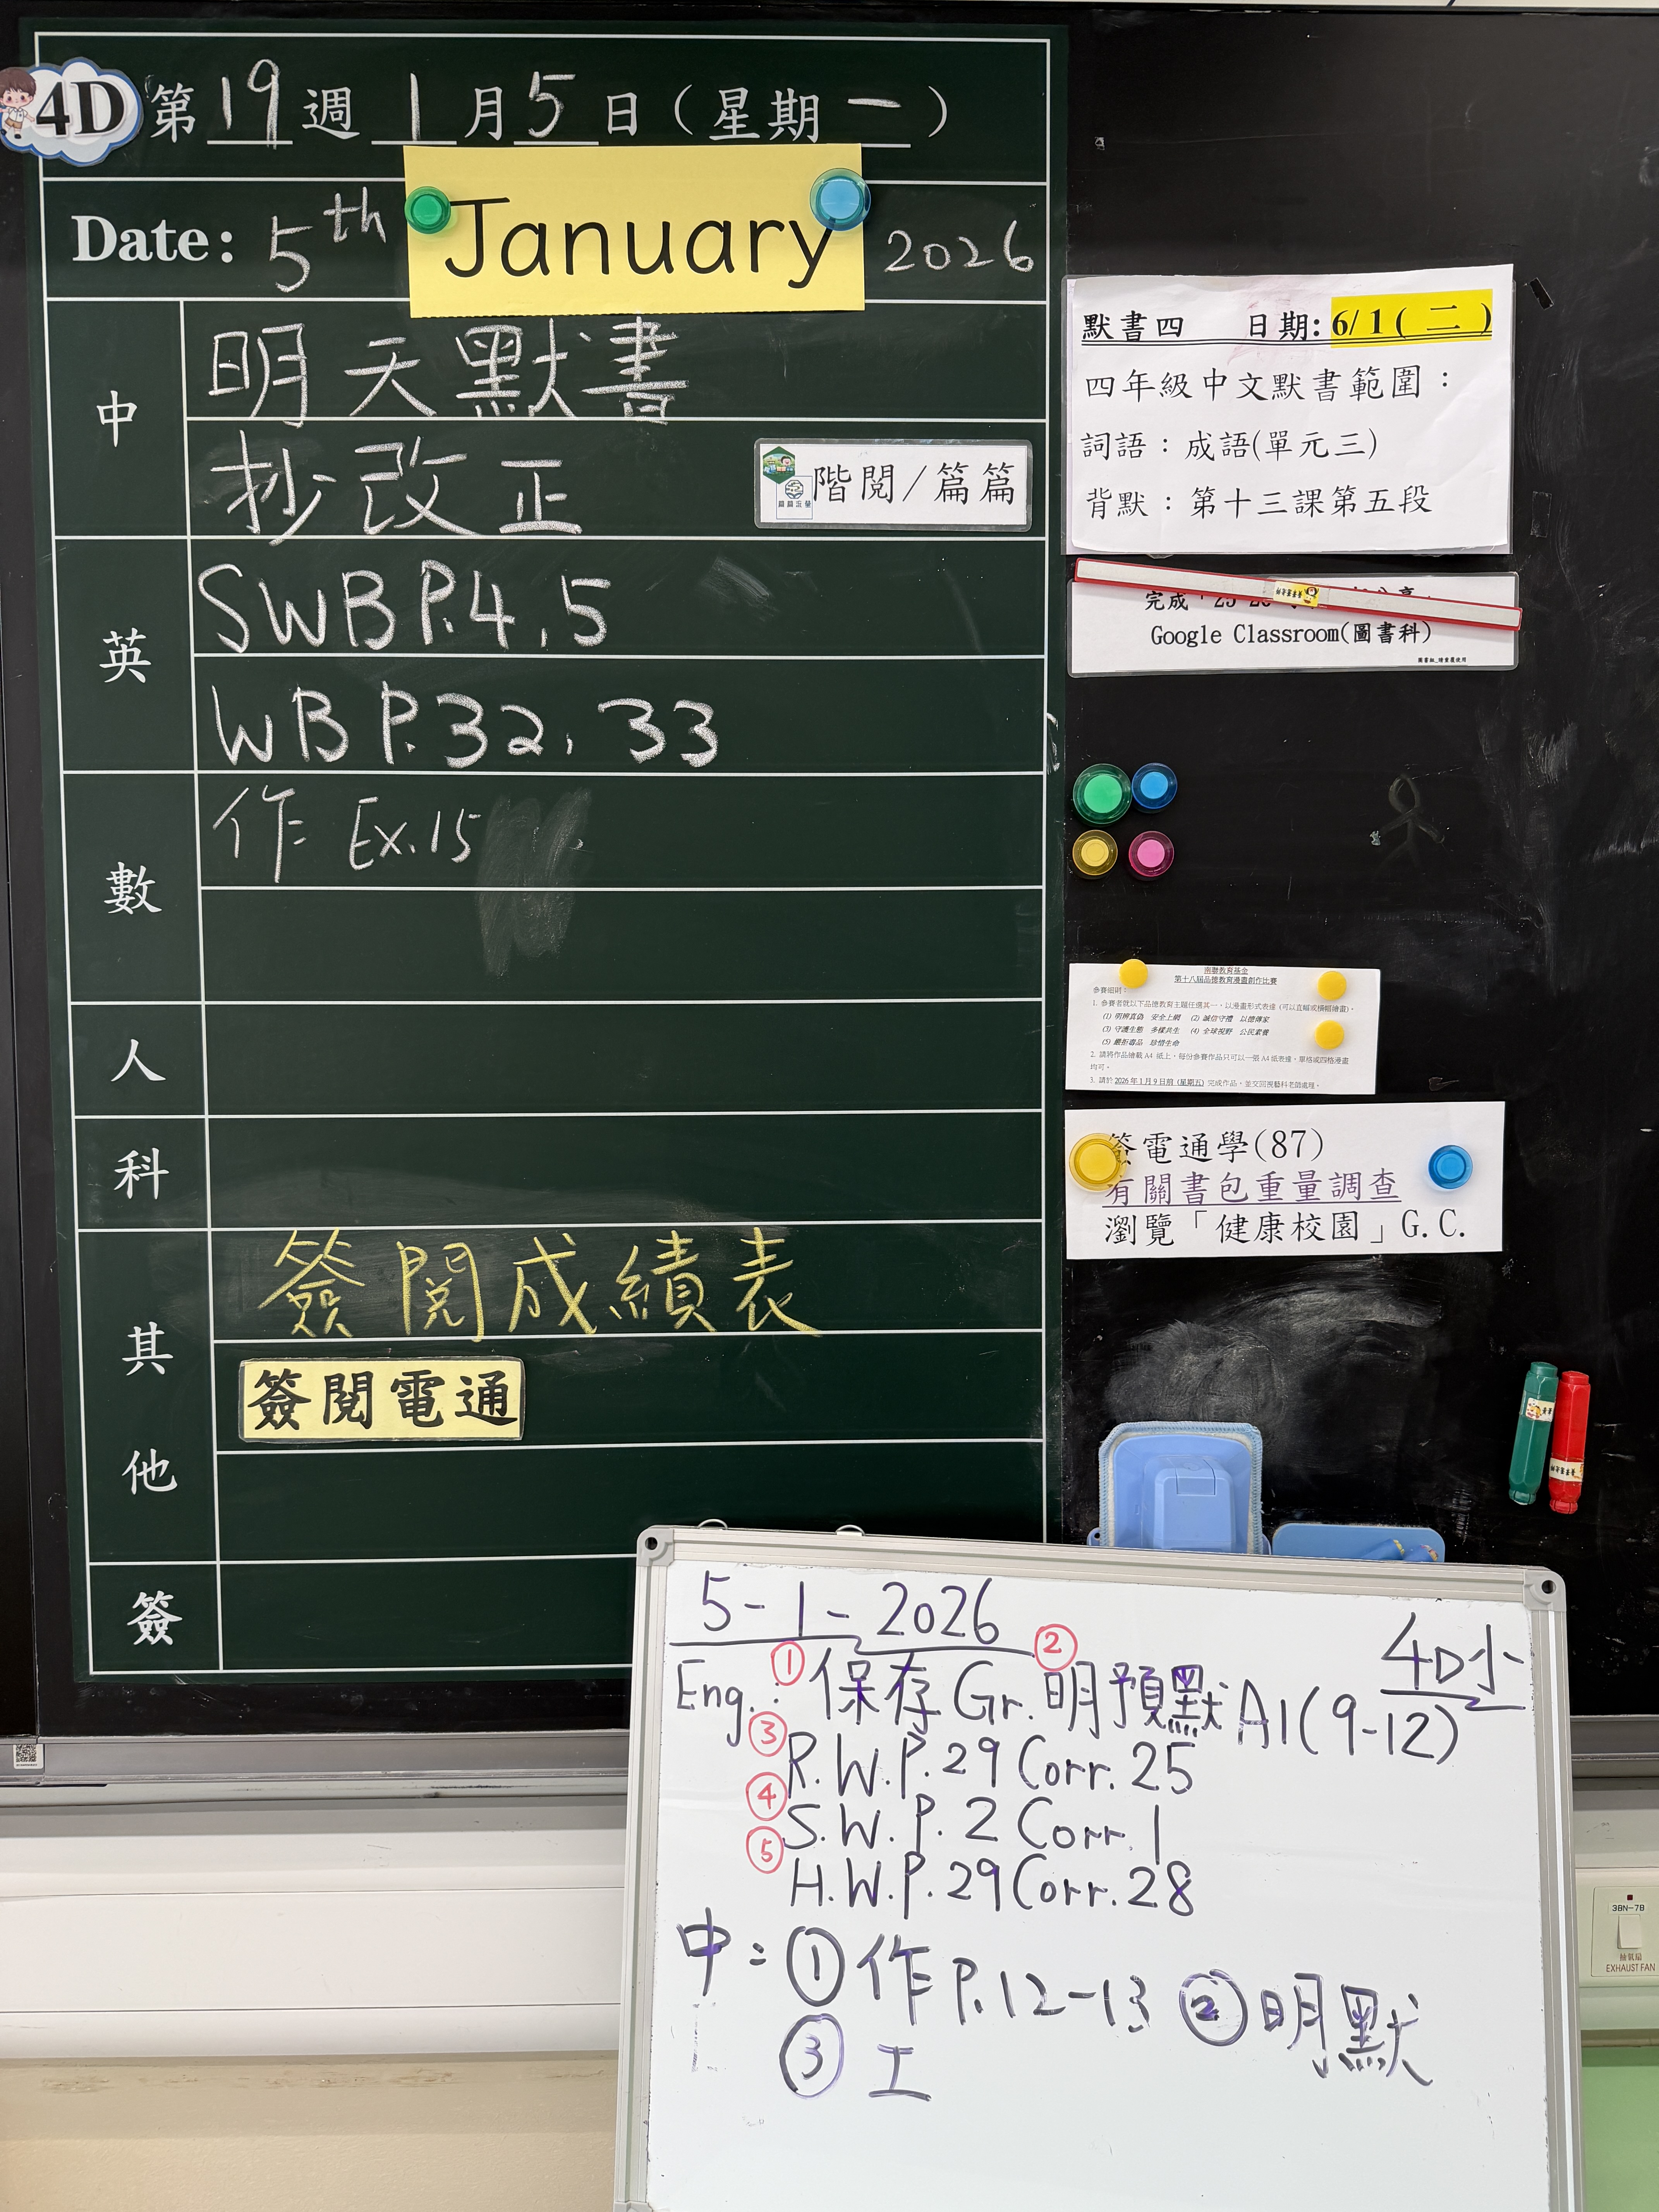 4D 第 19 週 1 月 5 日 (星期 一 )
Date: 5th January 2026
中
明天默書
抄改正
階閱/篇篇
英
SWB P.4, 5
WB P.32, 33
數
作 Ex.15
人
科
其他
簽閱成績表
簽閱電通
簽
默書四 日期: 6/1 ( 二 )
四年級中文默書範圍：
詞語：成語(單元三)
背默：第十三課第五段
完成
Google Classroom(圖書科)
第十八屆品德教育漫畫創作比賽
參賽細則：
1. 參賽者就以下品德教育主題任選其一，以漫畫形式表達 (可以直幅或橫幅繪畫)。
(1) 明辨真偽 安全上網 (2) 誠信守禮 以德傳家
(3) 守護生態 多樣共生 (4) 全球視野 公民素養
(5) 嚴拒毒品 珍惜生命
2. 請將作品繪載 A4 紙上，每份參賽作品只可以一張 A4 紙表達，單格或四格漫畫
均可。
3. 請於 2026 年 1 月 9 日前 (星期五) 完成作品，並交回視藝科老師處理。
簽電通學(87)
有關書包重量調查
瀏覽「健康校園」G.C.
5-1-2026
4D小
Eng.: ① 保存 Gr. ② 明預默 A1(9-12)
③ R.W.P.29 Corr.25
④ S.W.P.2 Corr.1
⑤ H.W.P.29 Corr.28
中: ① 作 P.12-13 ② 明默
③ 工
3BN-7B
抽氣扇
EXHAUST FAN